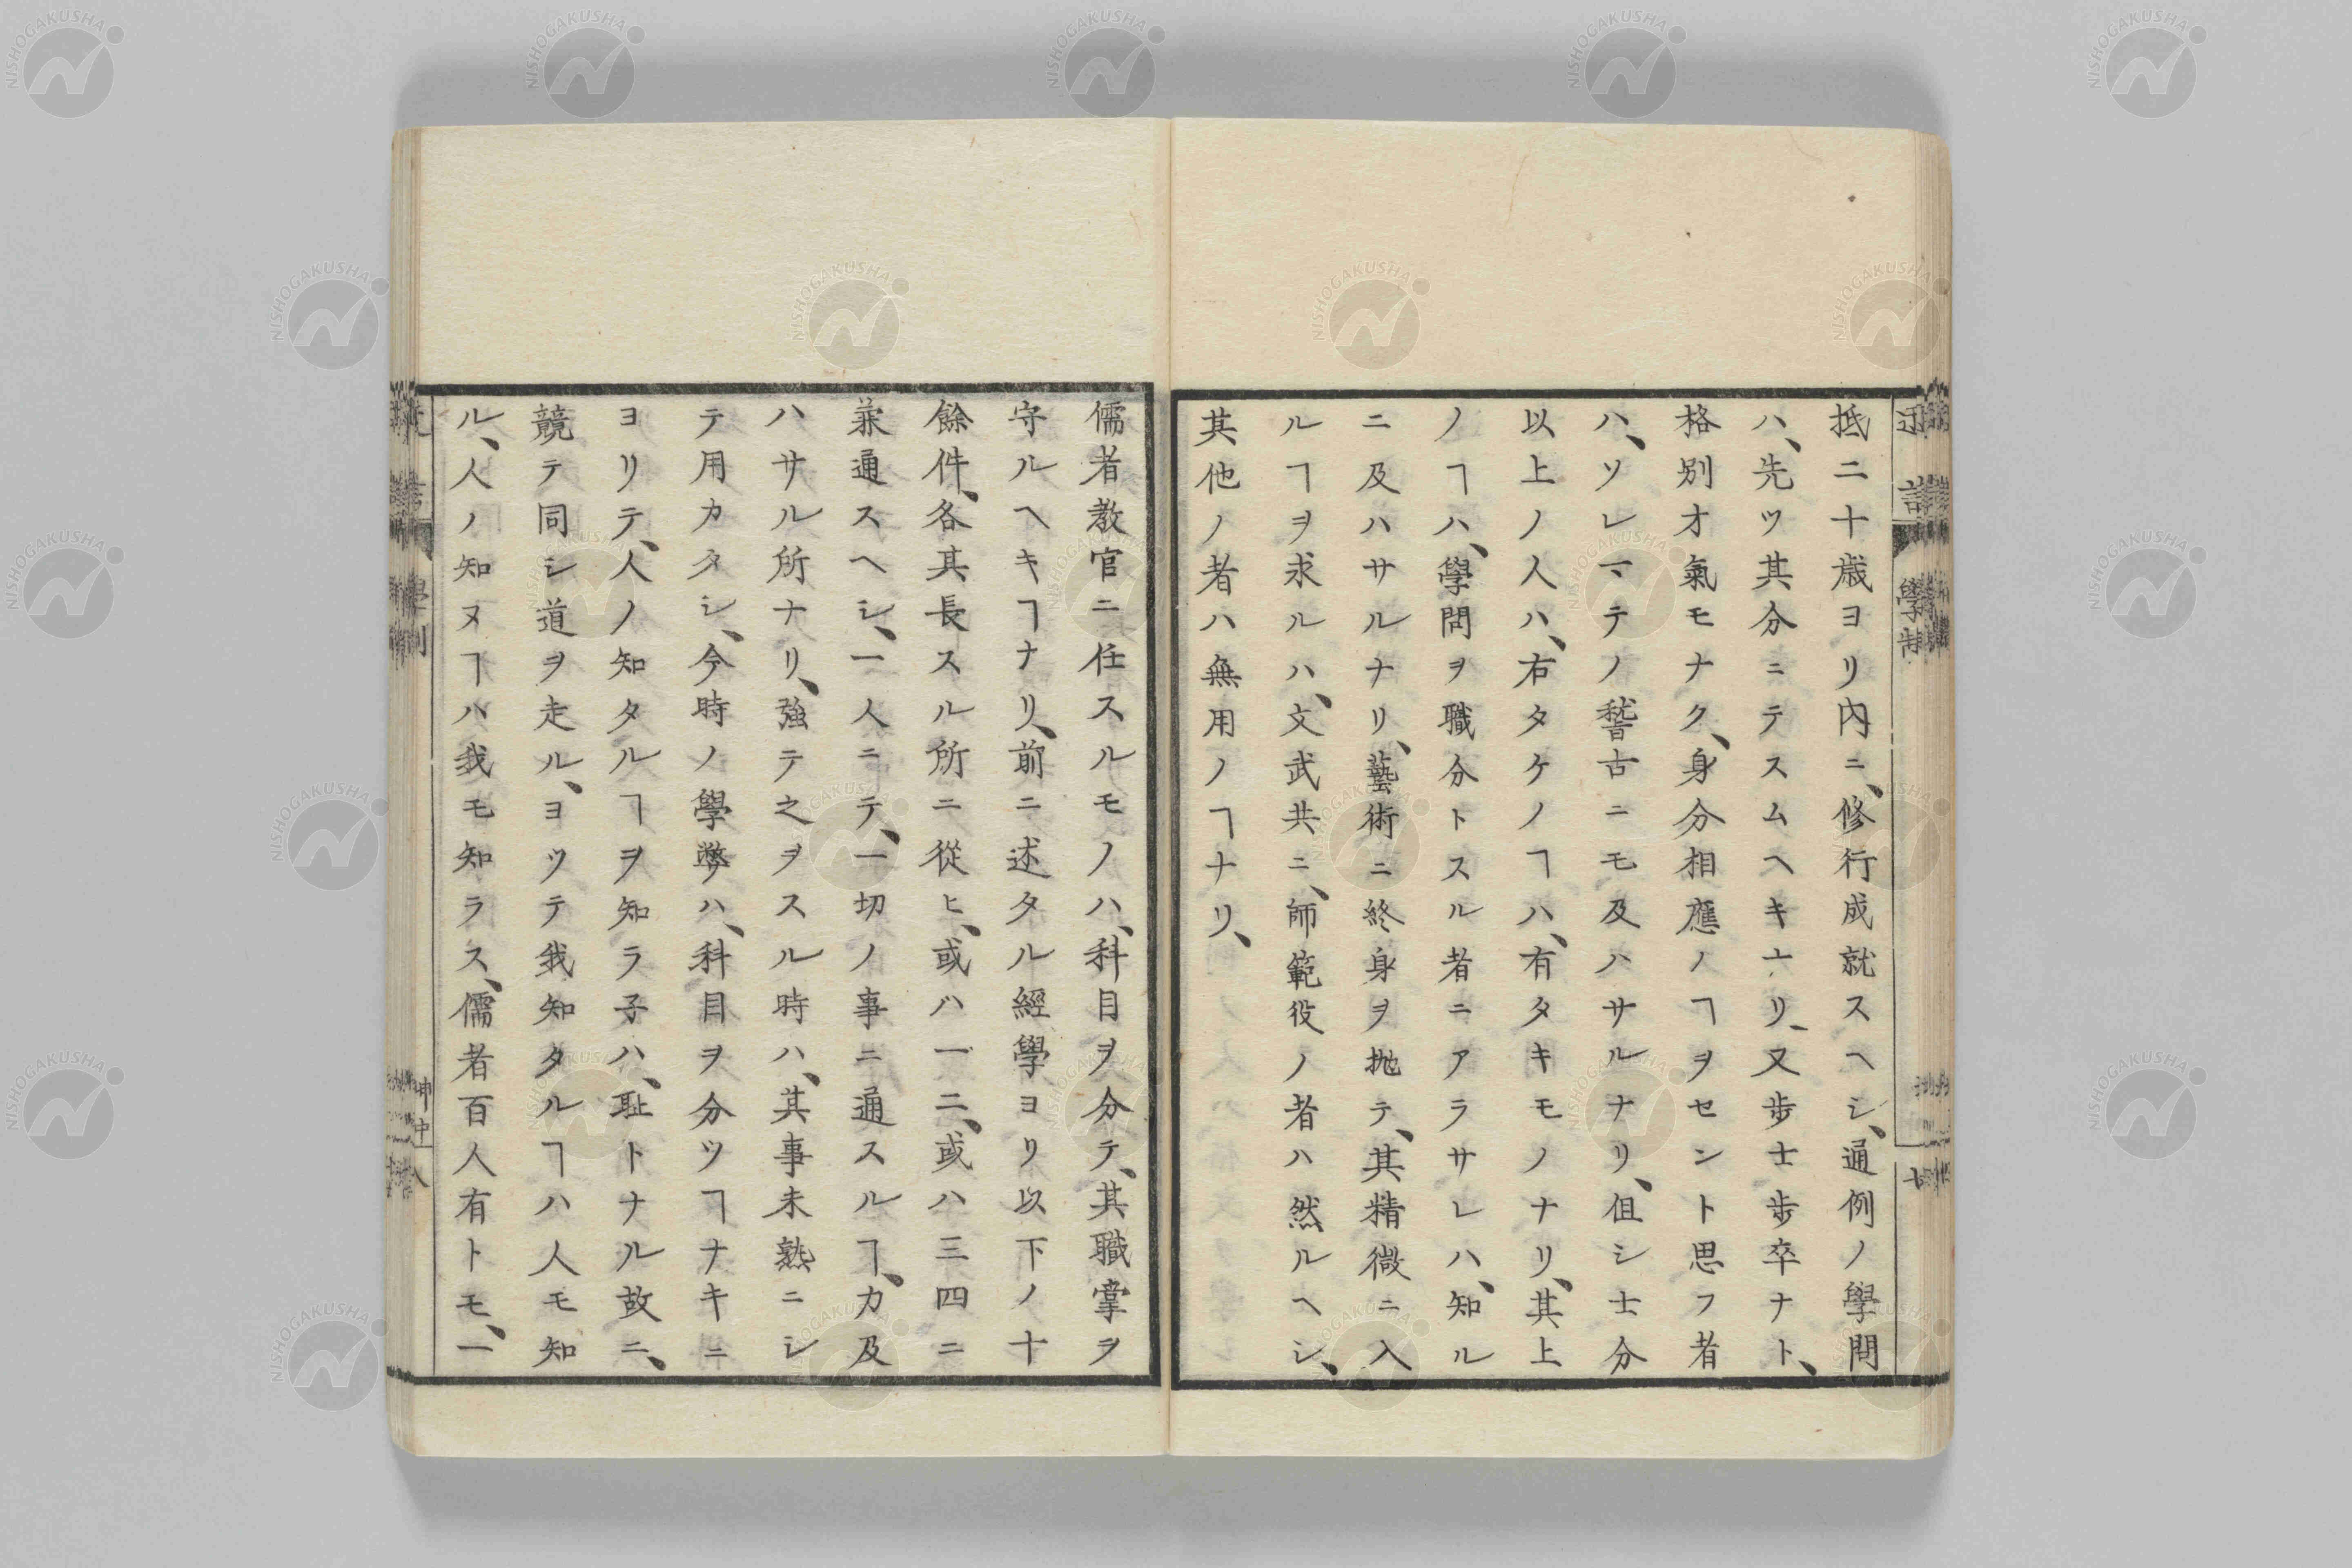 抵二十歳ヨリ內ニ、修行成就スヘシ、通例ノ學問
ハ、先ツ其分ニテスムヘキナリ、又歩士歩卒ナト、
格別才氣モナク、身分相應ノヿヲセント思フ者
ハ、ソレマテノ稽古ニモ及ハサルナリ、但シ士分
以上ノ人ハ、右タケノヿハ、有タキモノナリ、其上
ノヿハ、學問ヲ職分トスル者ニアラサレハ、知ル
ニ及ハサルナリ、藝術ニ終身ヲ抛テ、其精微ニ入
ルヿヲ求ルハ、文武共ニ、師範役ノ者ハ然ルヘシ、
其他ノ者ハ無用ノヿナリ、
儒者教官ニ任スルモノハ、科目ヲ分テ、其職掌ヲ
守ルヘキヿナリ、前ニ述タル經學ヨリ以下ノ十
餘件、各其長スル所ニ從ヒ、或ハ一二、或ハ三四ニ
兼通スヘシ、一人ニテ、一切ノ事ニ通スルヿ、力及
ハサル所ナリ、強テ之ヲスル時ハ、其事未熟ニシ
テ用カタシ、今時ノ學弊ハ、科目ヲ分ツヿナキニ
ヨリテ、人ノ知タルヿヲ知ラ子ハ、耻トナル故ニ、
競テ同シ道ヲ走ル、ヨツテ我知タルヿハ人モ知
ル、人ノ知ヌヿハ我モ知ラス、儒者百人有トモ、一
學制
七
NISHOGAKUSHA